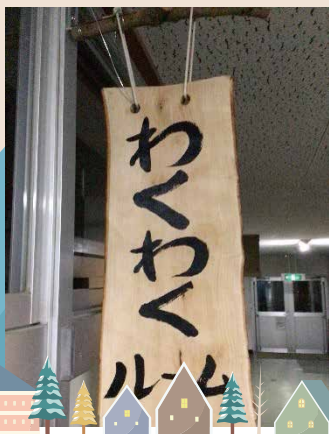 わくわく
ルーム